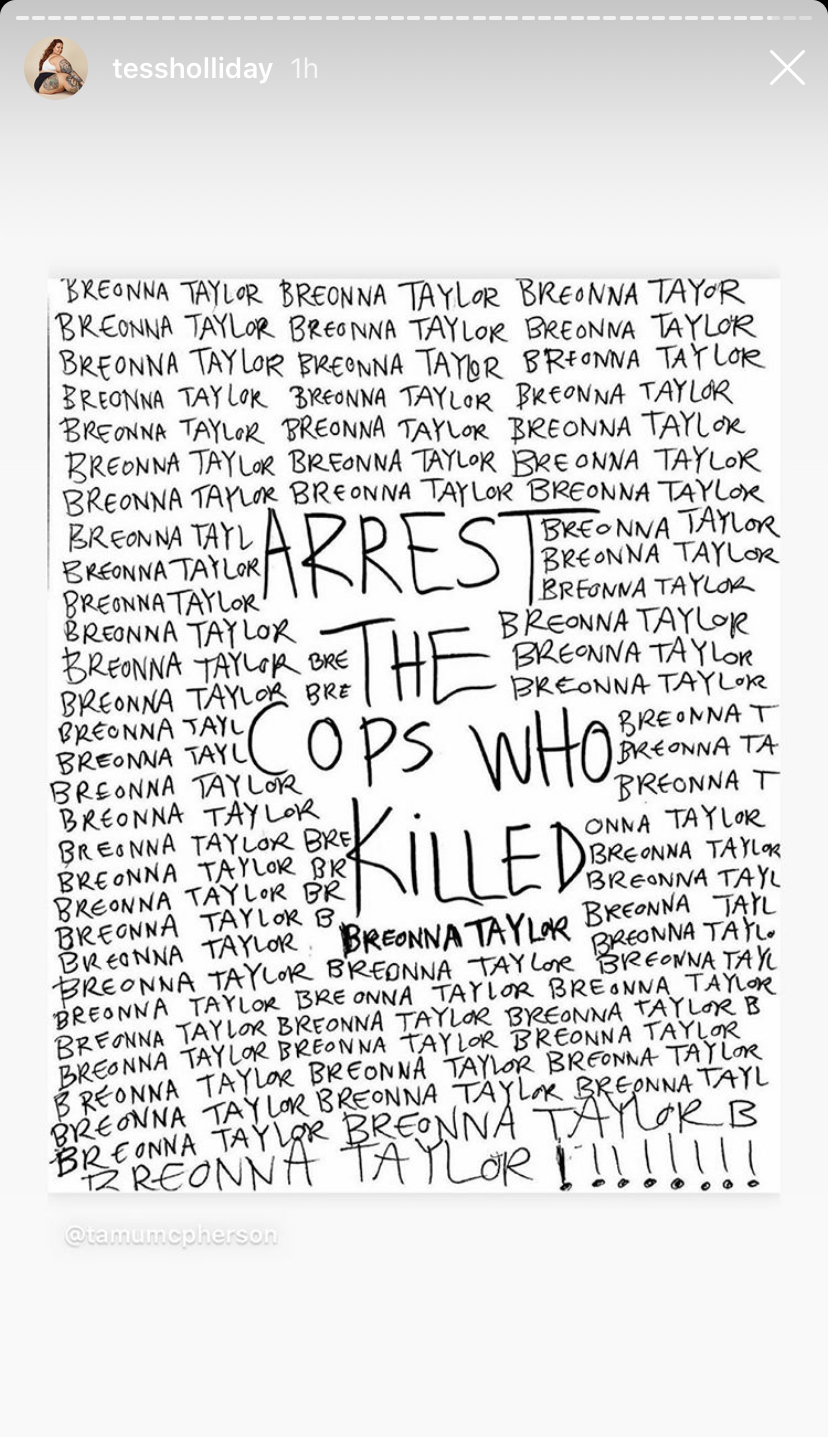 tessholliday 1h
BREONNA TAYLOR BREONNA TAYLOR BREONNA TAYOR
BREONNA TAYLOR BREONNA TAYLOR BREONNA TAYLOR
BREONNA TAYLOR BREONNA TAYLOR BREONNA TAYLOR
BREONNA TAYLOR BREONNA TAYLOR BREONNA TAYLOR
BREONNA TAYLOR BREONNA TAYLOR BREONNA TAYLOR
BREONNA TAYLOR BREONNA TAYLOR BREONNA TAYLOR
BREONNA TAYLOR BREONNA TAYLOR BREONNA TAYLOR
BREONNA TAYL BREONNA TAYLOR
BREONNA TAYLOR ARREST BREONNA TAYLOR
BREONNA TAYLOR BREONNA TAYLOR
BREONNA TAYLOR BREONNA TAYLOR
BREONNA TAYLOR BRE THE BREONNA TAYLOR
BREONNA TAYLOR BRE BREONNA TAYLOR
BREONNA TAYL BREONNA T
BREONNA TAYL COPS WHO BREONNA TA
BREONNA TAYLOR BREONNA T
BREONNA TAYLOR ONNA TAYLOR
BREONNA TAYLOR BRE KiLLED BREONNA TAYLOR
BREONNA TAYLOR BR BREONNA TAYL
BREONNA TAYLOR BR BREONNA TAYL
BREONNA TAYLOR B BREONNA TAYLOR BREONNA TAYLO
BREONNA TAYLOR BREONNA TAYL
BREONNA TAYLOR BREONNA TAYLOR BREONNA TAYLOR
BREONNA TAYLOR BREONNA TAYLOR BREONNA TAYLOR B
BREONNA TAYLOR BREONNA TAYLOR BREONNA TAYLOR
BREONNA TAYLOR BREONNA TAYLOR BREONNA TAYLOR
BREONNA TAYLOR BREONNA TAYLOR BREONNA TAYL
BREONNA TAYLOR BREONNA TAYLOR
BREONNA TAYLOR BREONNA TAYLOR B
BREONNA TAYLOR !!!!!!!!
@tamumcpherson